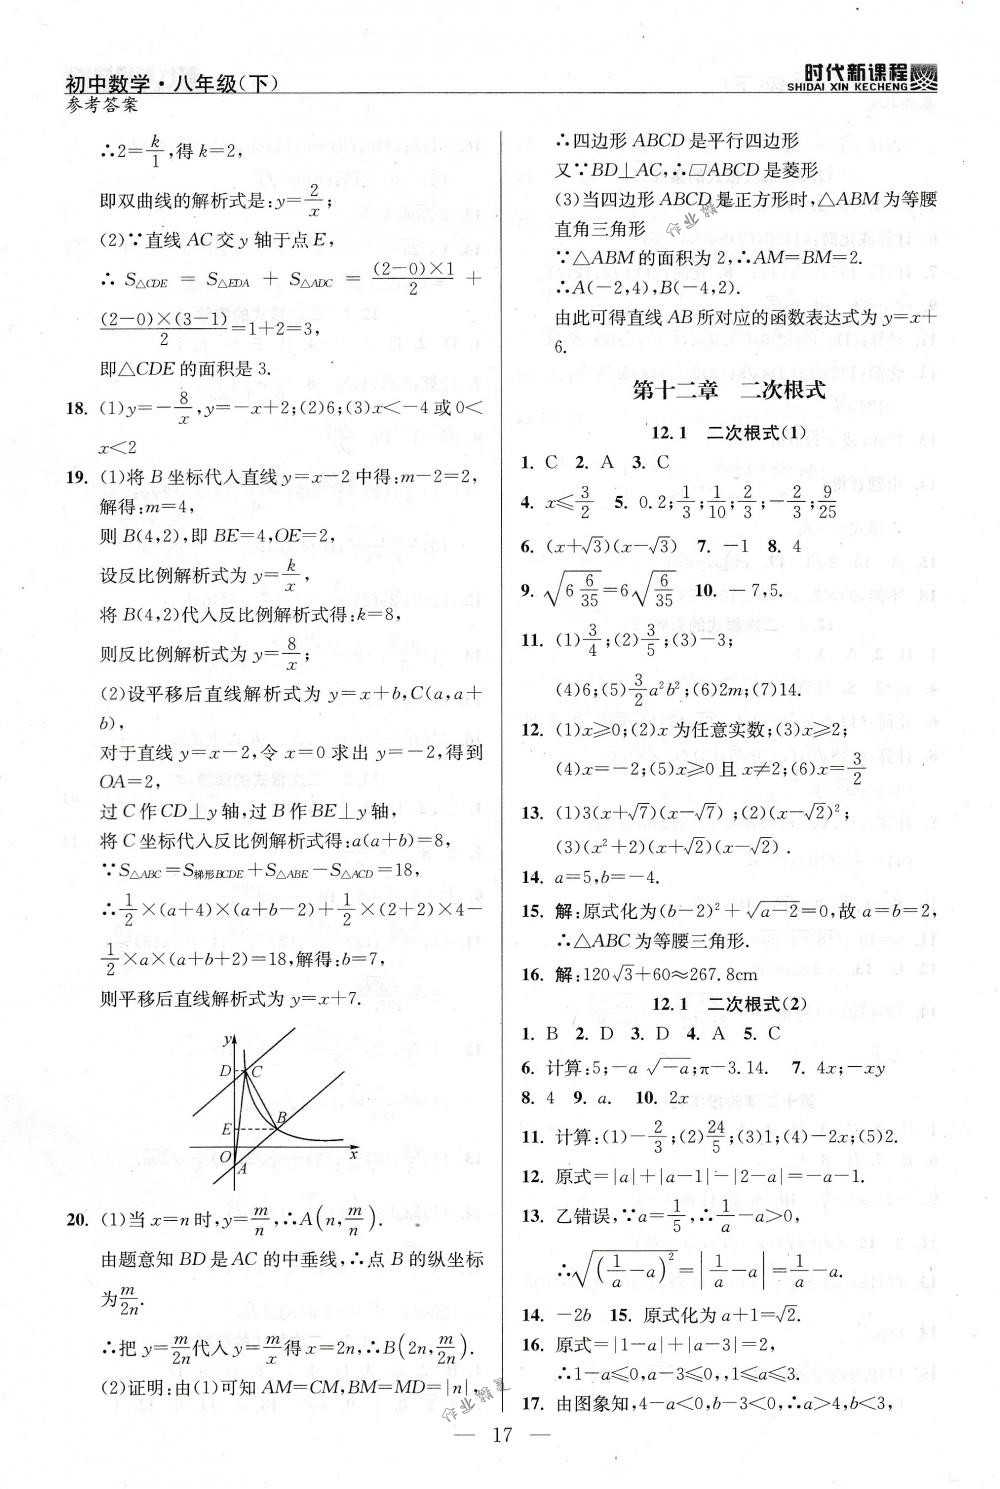 初中数学·八年级(下)
参考答案
时代新课程
SHIDAI XIN KECHENG
∴2=k/1,得k=2,
即双曲线的解析式是:y=2/x;
(2)∵直线AC交y轴于点E,
∴S△CDE = S△EDA + S△ADC = (2−0)×1/2 +
(2−0)×(3−1)/2=1+2=3,
即△CDE的面积是3.
18. (1)y=−8/x,y=−x+2;(2)6;(3)x<−4或0<
x<2
19. (1)将B坐标代入直线y=x−2中得:m−2=2,
解得:m=4,
则B(4,2),即BE=4,OE=2,
设反比例解析式为y=k/x,
将B(4,2)代入反比例解析式得:k=8,
则反比例解析式为y=8/x;
(2)设平移后直线解析式为y=x+b,C(a,a+
b),
对于直线y=x−2,令x=0求出y=−2,得到
OA=2,
过C作CD⊥y轴,过B作BE⊥y轴,
将C坐标代入反比例解析式得:a(a+b)=8,
∵S△ABC=S梯形BCDE+S△ABE−S△ACD=18,
∴1/2×(a+4)×(a+b−2)+1/2×(2+2)×4−
1/2×a×(a+b+2)=18,解得:b=7,
则平移后直线解析式为y=x+7.
y
D C
E B
O A x
20. (1)当x=n时,y=m/n,∴A(n,m/n).
由题意知BD是AC的中垂线,∴点B的纵坐标
为m/2n.
∴把y=m/2n代入y=m/x得x=2n,∴B(2n,m/2n).
(2)证明:由(1)可知AM=CM,BM=MD=|n|,
∴四边形ABCD是平行四边形
又∵BD⊥AC,∴□ABCD是菱形
(3)当四边形ABCD是正方形时,△ABM为等腰
直角三角形
∵△ABM的面积为2,∴AM=BM=2.
∴A(−2,4),B(−4,2).
由此可得直线AB所对应的函数表达式为y=x+
6.
第十二章 二次根式
12.1 二次根式(1)
1. C 2. A 3. C
4. x≤3/2 5. 0.2;1/3;1/10;2/3;−2/3;9/25
6. (x+√3)(x−√3) 7. −1 8. 4
9. √(6 6/35)=6√(6/35) 10. −7,5.
11. (1)3/4;(2)3/5;(3)−3;
(4)6;(5)3/2a²b²;(6)2m;(7)14.
12. (1)x≥0;(2)x为任意实数;(3)x≥2;
(4)x=−2;(5)x≥0且x≠2;(6)x=3/2
13. (1)3(x+√7)(x−√7);(2)(x−√2)²;
(3)(x²+2)(x+√2)(x−√2).
14. a=5,b=−4.
15. 解:原式化为(b−2)²+√(a−2)=0,故a=b=2,
∴△ABC为等腰三角形.
16. 解:120√3+60≈267.8cm
12.1 二次根式(2)
1. B 2. D 3. D 4. A 5. C
6. 计算:5;−a√(−a);π−3.14. 7. 4x;−xy
8. 4 9. a. 10. 2x
11. 计算:(1)−2/3;(2)24/5;(3)1;(4)−2x;(5)2.
12. 原式=|a|+|a−1|−|2−a|=−a−1.
13. 乙错误,∵a=1/5,∴1/a−a>0,
∴√((1/a−a)²)=|1/a−a|=1/a−a.
14. −2b 15. 原式化为a+1=√2.
16. 原式=|1−a|+|a−3|=2,
∴1−a≤0,a−3≤0,,1≤a≤3.
17. 由图象知,4−a<0,b−3<0,∴a>4,b<3,
— 17 —